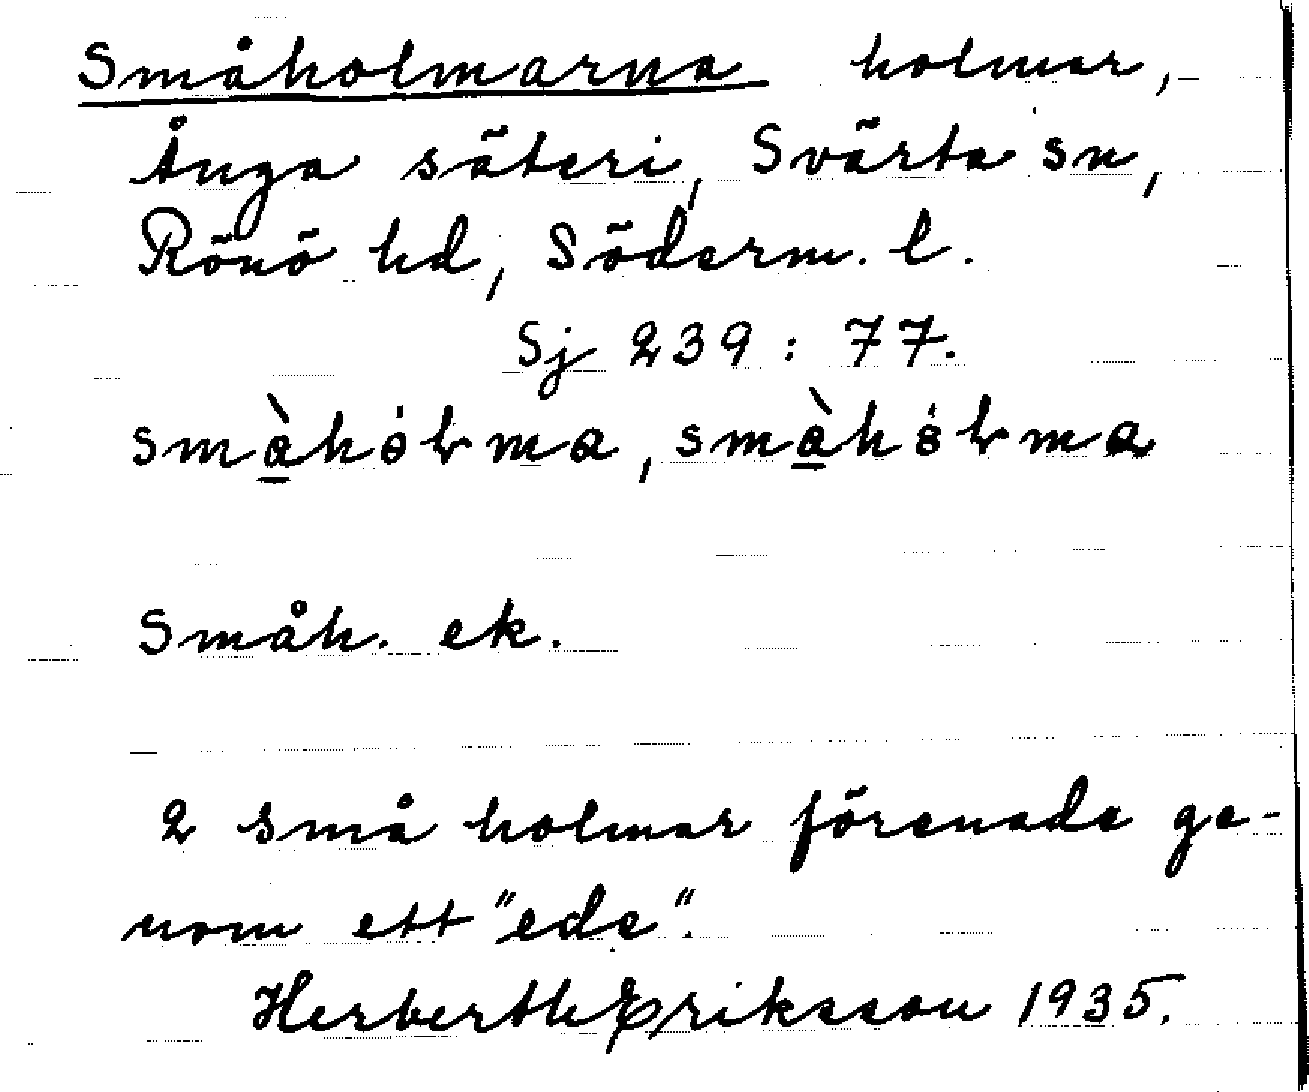 Småholmarna holmar,
Ånga säteri, Svärta sn,
Rönö hd, Söderm. l.
Sj 239 : 77.
Småh. ek.
2 små holmar förenade ge-
nom ett "ede".
Herberth Eriksson 1935.